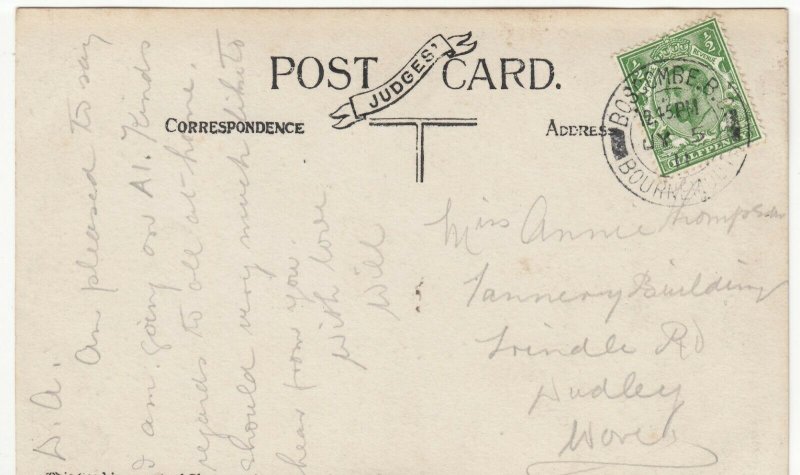 POST CARD.
JUDGES'
CORRESPONDENCE
ADDRESS
BOSCOMBE. B.O.
1245PM
JY 5
BOURNEMOUTH
½ ½
HALFPENNY
D. A.
Am pleased to say
I am going on A1. Kinds
regards to all at home.
Should very much like to
hear from you.
With love
Will
Miss Annie Thompson
Tannery Building
Trindle Rd
Dudley
Worcs